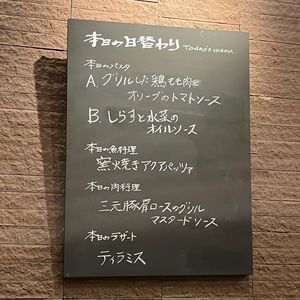 本日の日替わり Today's menu
本日のパスタ
A. グリルした鶏もも肉と
オリーブのトマトソース
B. しらすと水菜の
オイルソース
本日の魚料理
窯焼きアクアパッツァ
本日の肉料理
三元豚肩ロースのグリル
マスタードソース
本日のデザート
ティラミス